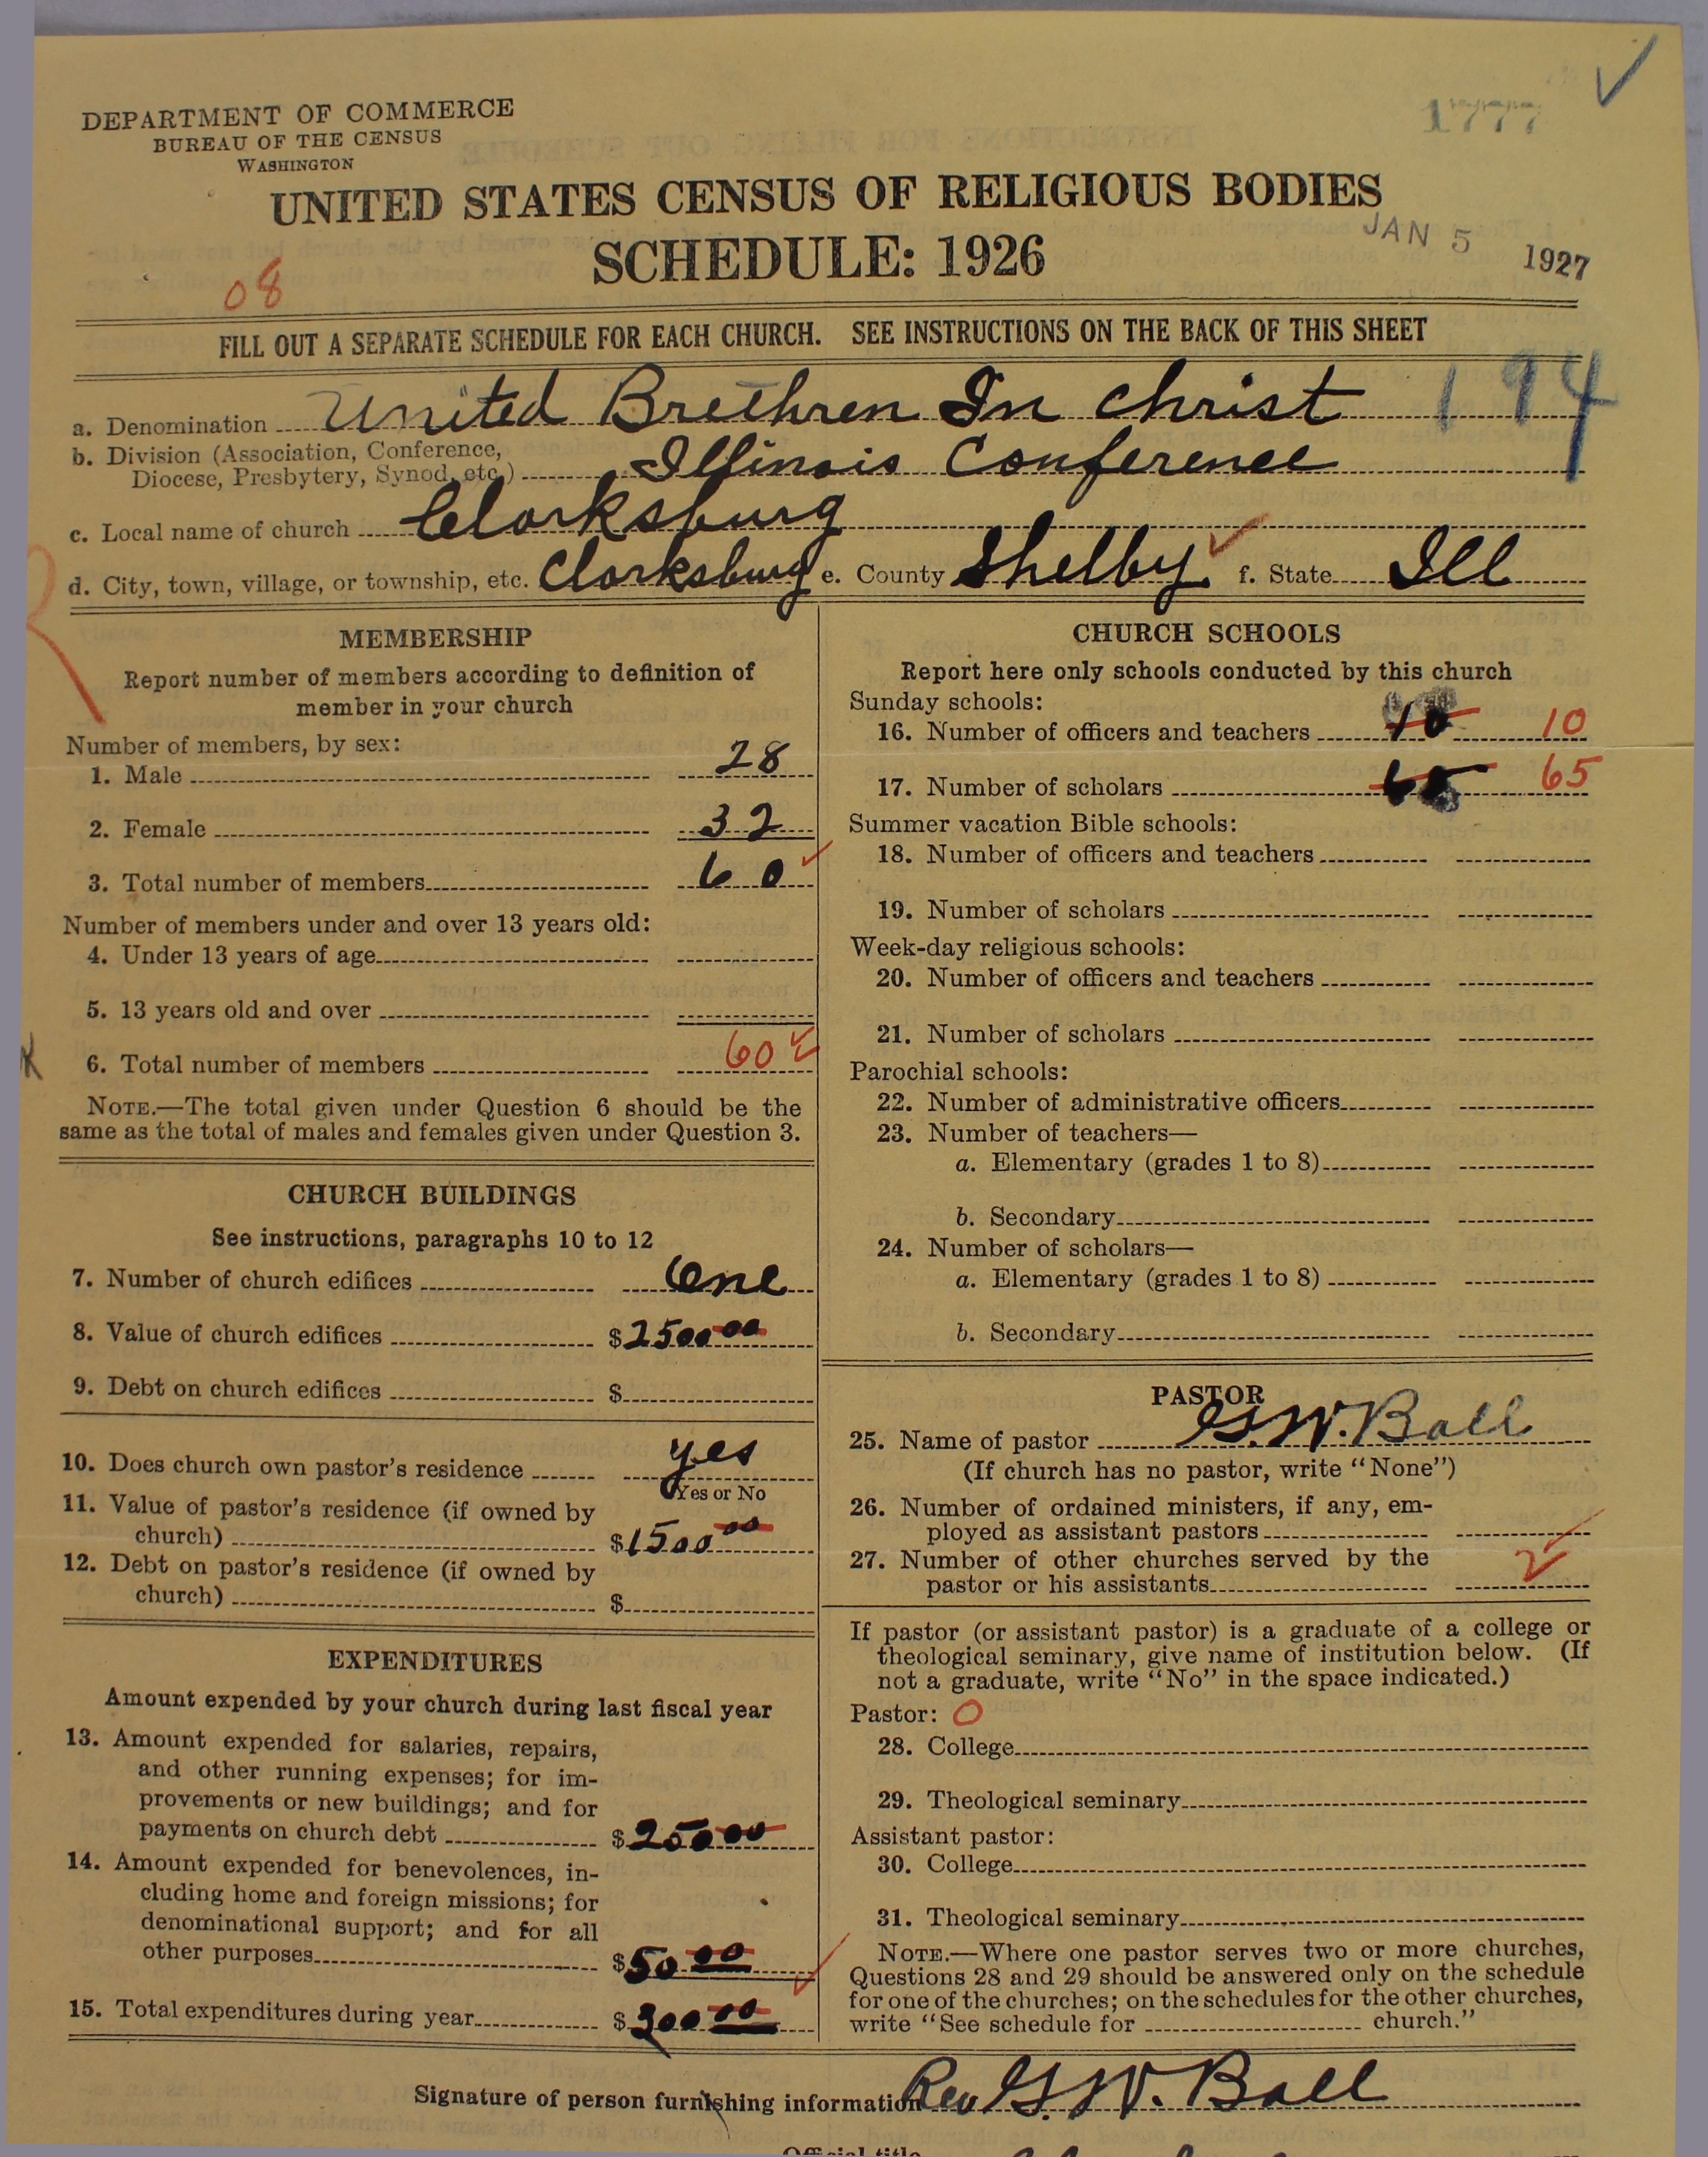 1777
DEPARTMENT OF COMMERCE
BUREAU OF THE CENSUS
WASHINGTON
UNITED STATES CENSUS OF RELIGIOUS BODIES
SCHEDULE: 1926
JAN 5 1927
08
FILL OUT A SEPARATE SCHEDULE FOR EACH CHURCH. SEE INSTRUCTIONS ON THE BACK OF THIS SHEET
a. Denomination United Brethren In Christ 194
b. Division (Association, Conference,
Diocese, Presbytery, Synod, etc.) Illinois Conference
c. Local name of church Clarksburg
d. City, town, village, or township, etc. Clarksburg e. County Shelby f. State Ill
MEMBERSHIP
Report number of members according to definition of
member in your church
Number of members, by sex:
1. Male 28
2. Female 32
3. Total number of members 60
Number of members under and over 13 years old:
4. Under 13 years of age
5. 13 years old and over
6. Total number of members 60
NOTE.—The total given under Question 6 should be the
same as the total of males and females given under Question 3.
CHURCH BUILDINGS
See instructions, paragraphs 10 to 12
7. Number of church edifices One
8. Value of church edifices $2500 00
9. Debt on church edifices $
10. Does church own pastor's residence yes
Yes or No
11. Value of pastor's residence (if owned by
church) $1500 00
12. Debt on pastor's residence (if owned by
church) $
EXPENDITURES
Amount expended by your church during last fiscal year
13. Amount expended for salaries, repairs,
and other running expenses; for im-
provements or new buildings; and for
payments on church debt $250 00
14. Amount expended for benevolences, in-
cluding home and foreign missions; for
denominational support; and for all
other purposes $50 00
15. Total expenditures during year $300 00
CHURCH SCHOOLS
Report here only schools conducted by this church
Sunday schools:
16. Number of officers and teachers 10 10
17. Number of scholars 65 65
Summer vacation Bible schools:
18. Number of officers and teachers
19. Number of scholars
Week-day religious schools:
20. Number of officers and teachers
21. Number of scholars
Parochial schools:
22. Number of administrative officers
23. Number of teachers—
a. Elementary (grades 1 to 8)
b. Secondary
24. Number of scholars—
a. Elementary (grades 1 to 8)
b. Secondary
PASTOR
25. Name of pastor G. W. Ball
(If church has no pastor, write "None")
26. Number of ordained ministers, if any, em-
ployed as assistant pastors
27. Number of other churches served by the
pastor or his assistants 2
If pastor (or assistant pastor) is a graduate of a college or
theological seminary, give name of institution below. (If
not a graduate, write "No" in the space indicated.)
Pastor: 0
28. College
29. Theological seminary
Assistant pastor:
30. College
31. Theological seminary
NOTE.—Where one pastor serves two or more churches,
Questions 28 and 29 should be answered only on the schedule
for one of the churches; on the schedules for the other churches,
write "See schedule for church."
Signature of person furnishing information Rev G. W. Ball
Official title